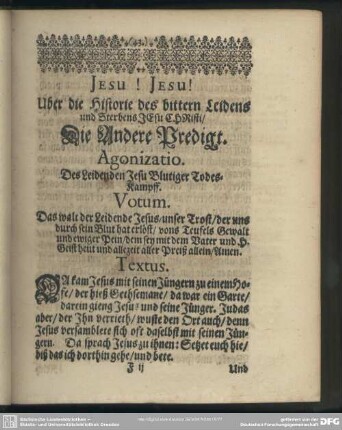 JESU! JESU!
Uber die Historie des bittern Leidens
und Sterbens JEsu CHRisti/
Die Andere Predigt.
Agonizatio.
Des Leidenden Jesu Blutiger Todes-
Kampff.
Votum.
Das walt der Leidende Jesus/unser Trost/der uns
durch sein Blut hat erlöst/ vons Teufels Gewalt
und ewiger Pein/dem sey mit dem Vater und H.
Geist heut und allezeit aller Preiß allein/Amen.
Textus.
DA kam Jesus mit seinen Jüngern zu einem Ho-
fe/ der hieß Gethsemane/ da war ein Garte/
darein gieng Jesus und seine Jünger. Judas
aber/ der Jhn verrieth/ wuste den Ort auch/ denn
Jesus versamblete sich oft daselbst mit seinen Jün-
gern. Da sprach Jesus zu ihnen: Setzet euch hie/
biß das ich dorthin gehe/und bete.
F ij Und